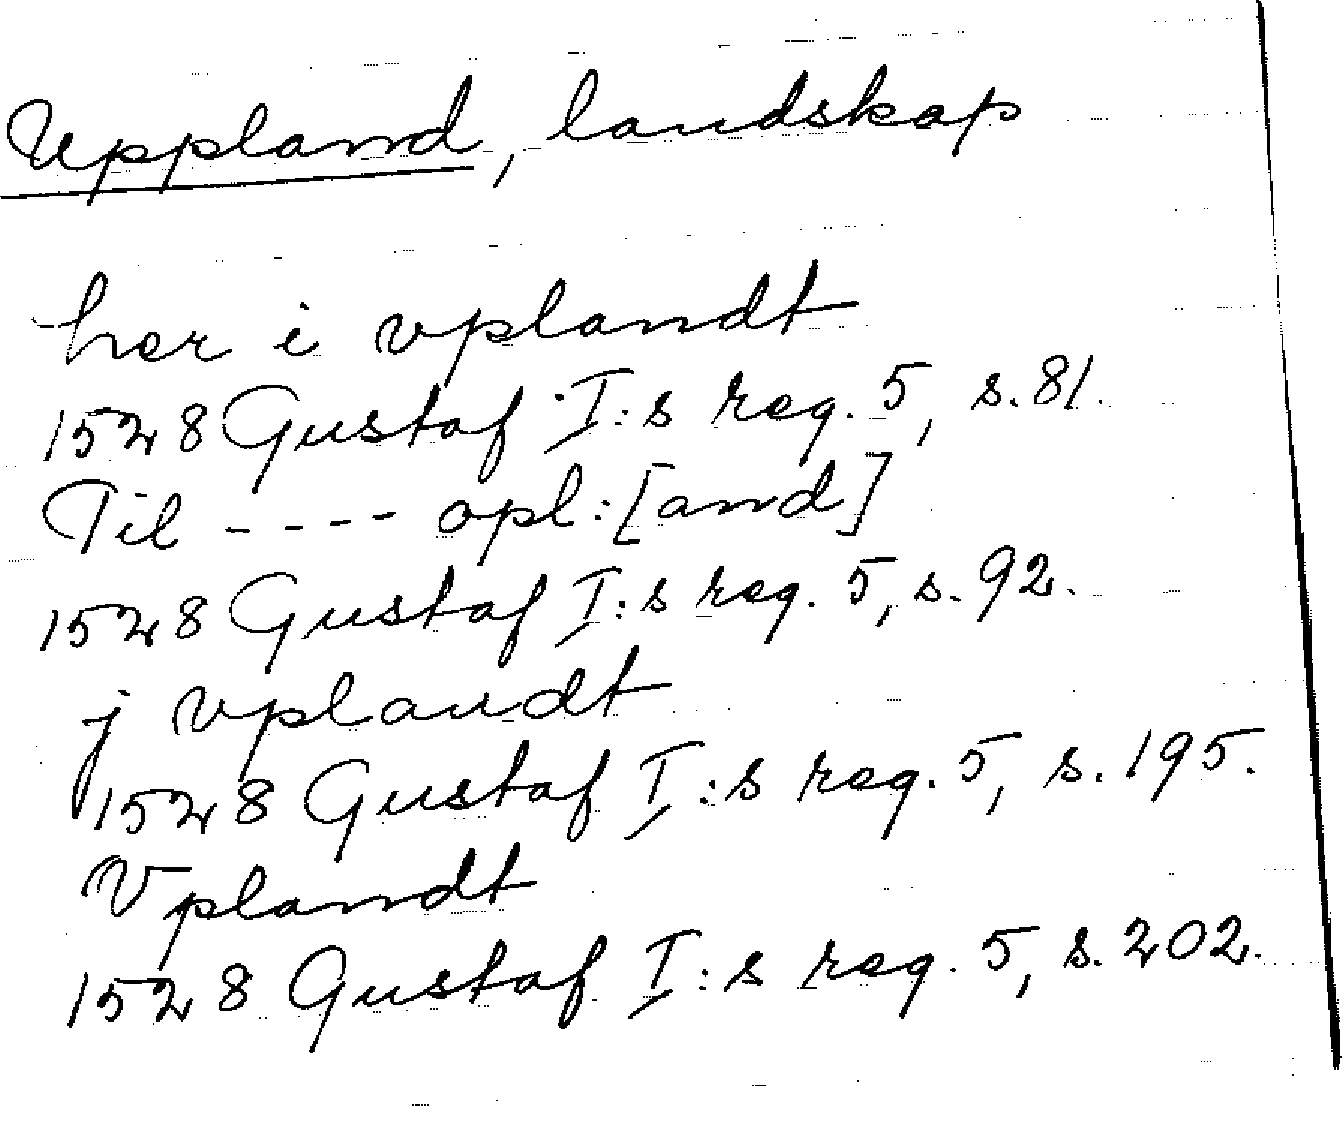 Uppland, landskap
her i vplandt
1528 Gustaf I:s reg. 5, s. 81.
Til ---- opl:[and]
1528 Gustaf I:s reg. 5, s. 92.
j vplandt
1528 Gustaf I:s reg. 5, s. 195.
Vplandt
1528 Gustaf I:s reg. 5, s. 202.